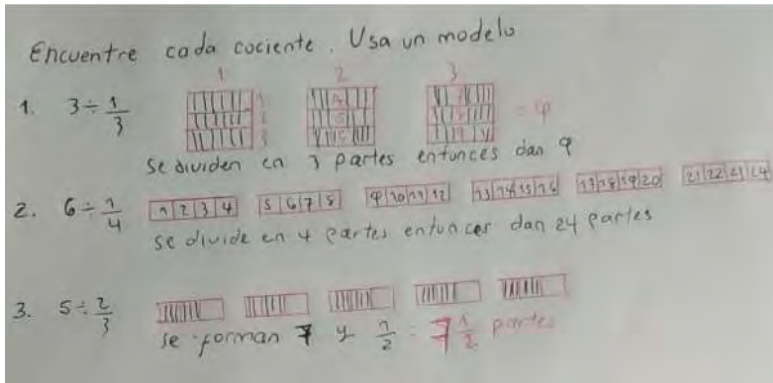 Encuentre cada cociente. Usa un modelo
1 2 3
1. 3 ÷ 1/3 1 2 3 4 5 6 7 8 9 = 9
se dividen en 3 partes entonces dan 9
2. 6 ÷ 1/4 1 2 3 4 5 6 7 8 9 10 11 12 13 14 15 16 17 18 19 20 21 22 23 24
se divide en 4 partes entonces dan 24 partes
3. 5 ÷ 2/3
se forman 7 y 1/2 = 7 1/2 partes